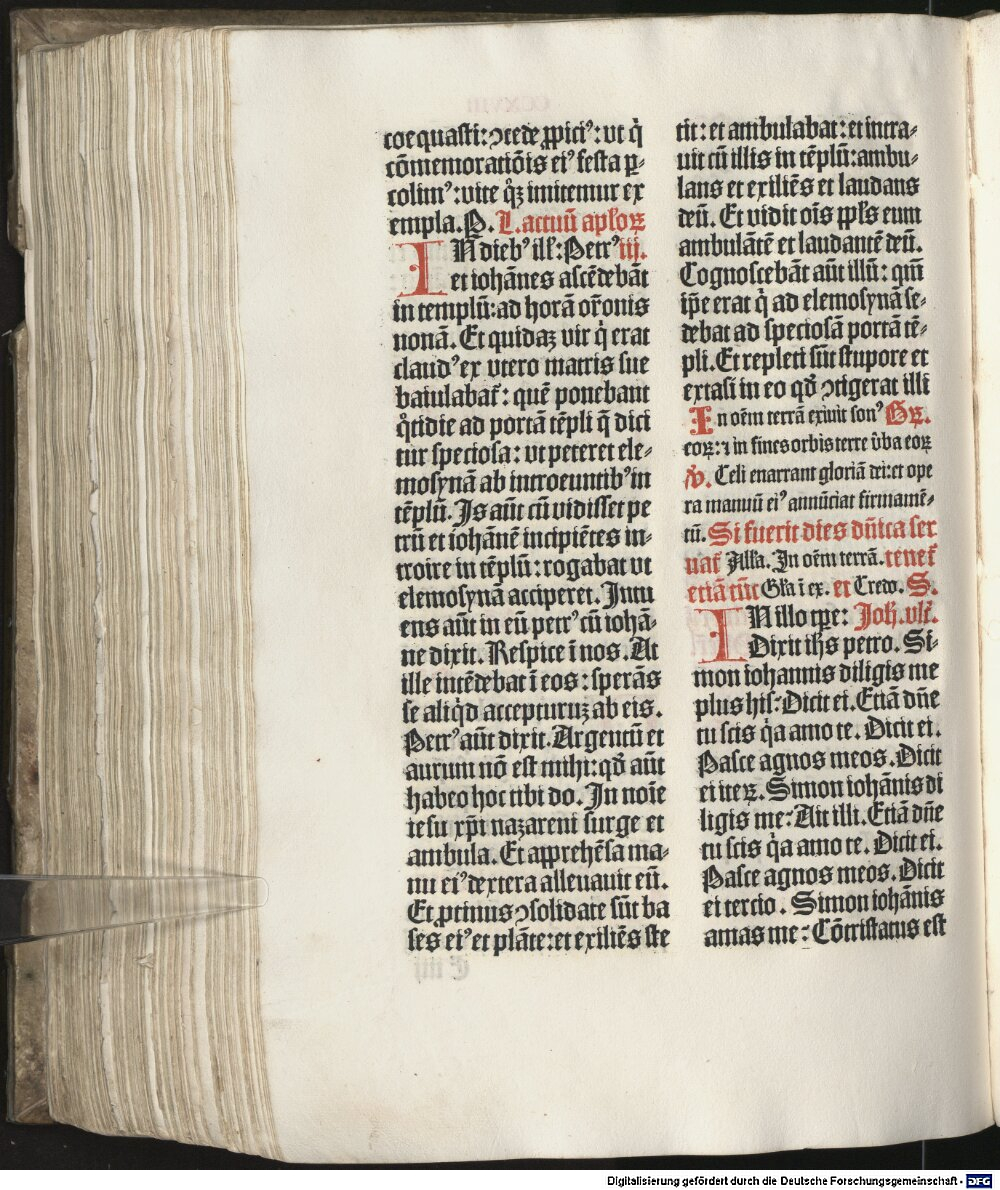 coequasti: ꝯcede ꝓpiciꝰ: ut q̇
cõmemoratiõis eiꝰ festa ꝑ-
colimꝰ: vite q̊ꝫ imitemur ex
empla. P. L. actuũ aplo᷑ꝝ
IN diebꝰ ill᷑: Petrꝰ iij.
et iohãnes ascẽdebãt
in templũ: ad horã or̃onis
nonã. Et quidaꝫ vir q̇ erat
claudꝰ ex vtero matris sue
baiulabat᷑: quẽ ponebant
q̊tidie ad portã tẽpli q̃ dici
tur speciosa: ut peteret ele-
mosynã ab introeuntibꝰ in
tẽplũ. Is aũt cũ vidisset pe
trũ et iohãnẽ incipiẽtes in-
troire in tẽplũ: rogabat ut
elemosynã acciperet. Intu
ens aũt in eũ petrꝰ cũ iohã-
ne dixit. Respice ĩ nos. At
ille intẽdebat ĩ eos: sperãs
se aliq̇d accepturuꝫ ab eis.
Petrꝰ aũt dixit. Argentũ et
aurum nõ est mihi: qd̛ aũt
habeo hoc tibi do. In noĩe
iesu xp̃i nazareni surge et
ambula. Et apprehẽsa ma-
nu eiꝰ dextera alleuauit eũ.
Et ꝓtinus ꝯsolidate sũt ba
ses eiꝰ et plãte: et exiliẽs ste
tit: et ambulabat: et intra-
uit cũ illis in tẽplũ: ambu-
lans et exiliẽs et laudans
deũ. Et vidit oĩs ppl᷑s eum
ambulãtẽ et laudantẽ deũ.
Cognoscebãt aũt illũ: qm̃
ip̃e erat q̇ ad elemosynã se-
debat ad speciosã portã tẽ-
pli. Et repleti sũt stupore et
extasi in eo qd̛ ꝯtigerat illi
In oẽm terrã exiuit sonꝰ Gꝝ.
eoꝝ: ⁊ in fines orbis terre v̾ba eoꝝ
V̾. Celi enarrant gloriã dei: et ope
ra manuũ eiꝰ annũciat firmamẽ-
tũ. Si fuerit dies dñica ser
uat᷑ All᷑a. In oẽm terrã. tenet᷑
etiã tũc Gl᷑a ĩ ex. et Credo. S.
IN illo tp̃e: Joh̃. vlt᷑.
Dixit ih̃s petro. Si-
mon iohannis diligis me
plus his: Dicit ei. Etiã dñe
tu scis q̇a amo te. Dicit ei.
Pasce agnos meos. Dicit
ei iteꝝ. Simon iohãnis di
ligis me: Ait illi. Etiã dñe
tu scis q̇a amo te. Dicit ei.
Pasce agnos meos. Dicit
ei tercio. Simon iohãnis
amas me: Cõtristatus est
Digitalisierung gefördert durch die Deutsche Forschungsgemeinschaft - DFG